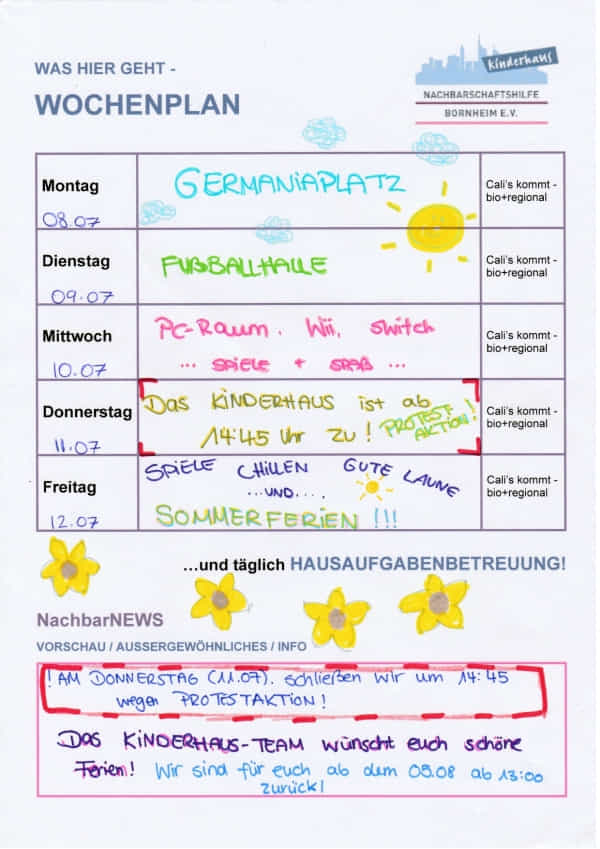 WAS HIER GEHT -
WOCHENPLAN
kinderhaus
NACHBARSCHAFTSHILFE
BORNHEIM E.V.
Montag
08.07
GERMANIAPLATZ
Cali's kommt -
bio+regional
Dienstag
09.07
FUßBALLHALLE
Cali's kommt -
bio+regional
Mittwoch
10.07
PC-Raum, Wii, Switch
... SPIELE + SPAß ...
Cali's kommt -
bio+regional
Donnerstag
11.07
DAS KINDERHAUS ist ab
14:45 Uhr ZU!
PROTEST-
AKTION!
Cali's kommt -
bio+regional
Freitag
12.07
SPIELE CHILLEN GUTE LAUNE
...UND....
SOMMERFERIEN!!!
Cali's kommt -
bio+regional
...und täglich HAUSAUFGABENBETREUUNG!
NachbarNEWS
VORSCHAU / AUSSERGEWÖHNLICHES / INFO
! AM DONNERSTAG (11.07). schließen wir um 14:45
wegen PROTESTAKTION!
DAS KINDERHAUS-TEAM wünscht euch schöne
Ferien! Wir sind für euch ab dem 05.08 ab 13:00
zurück!